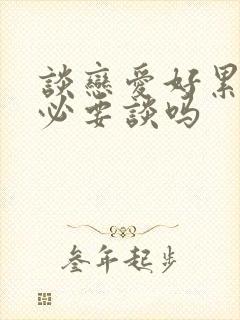 談戀愛好累
必要談吗
叁年起步